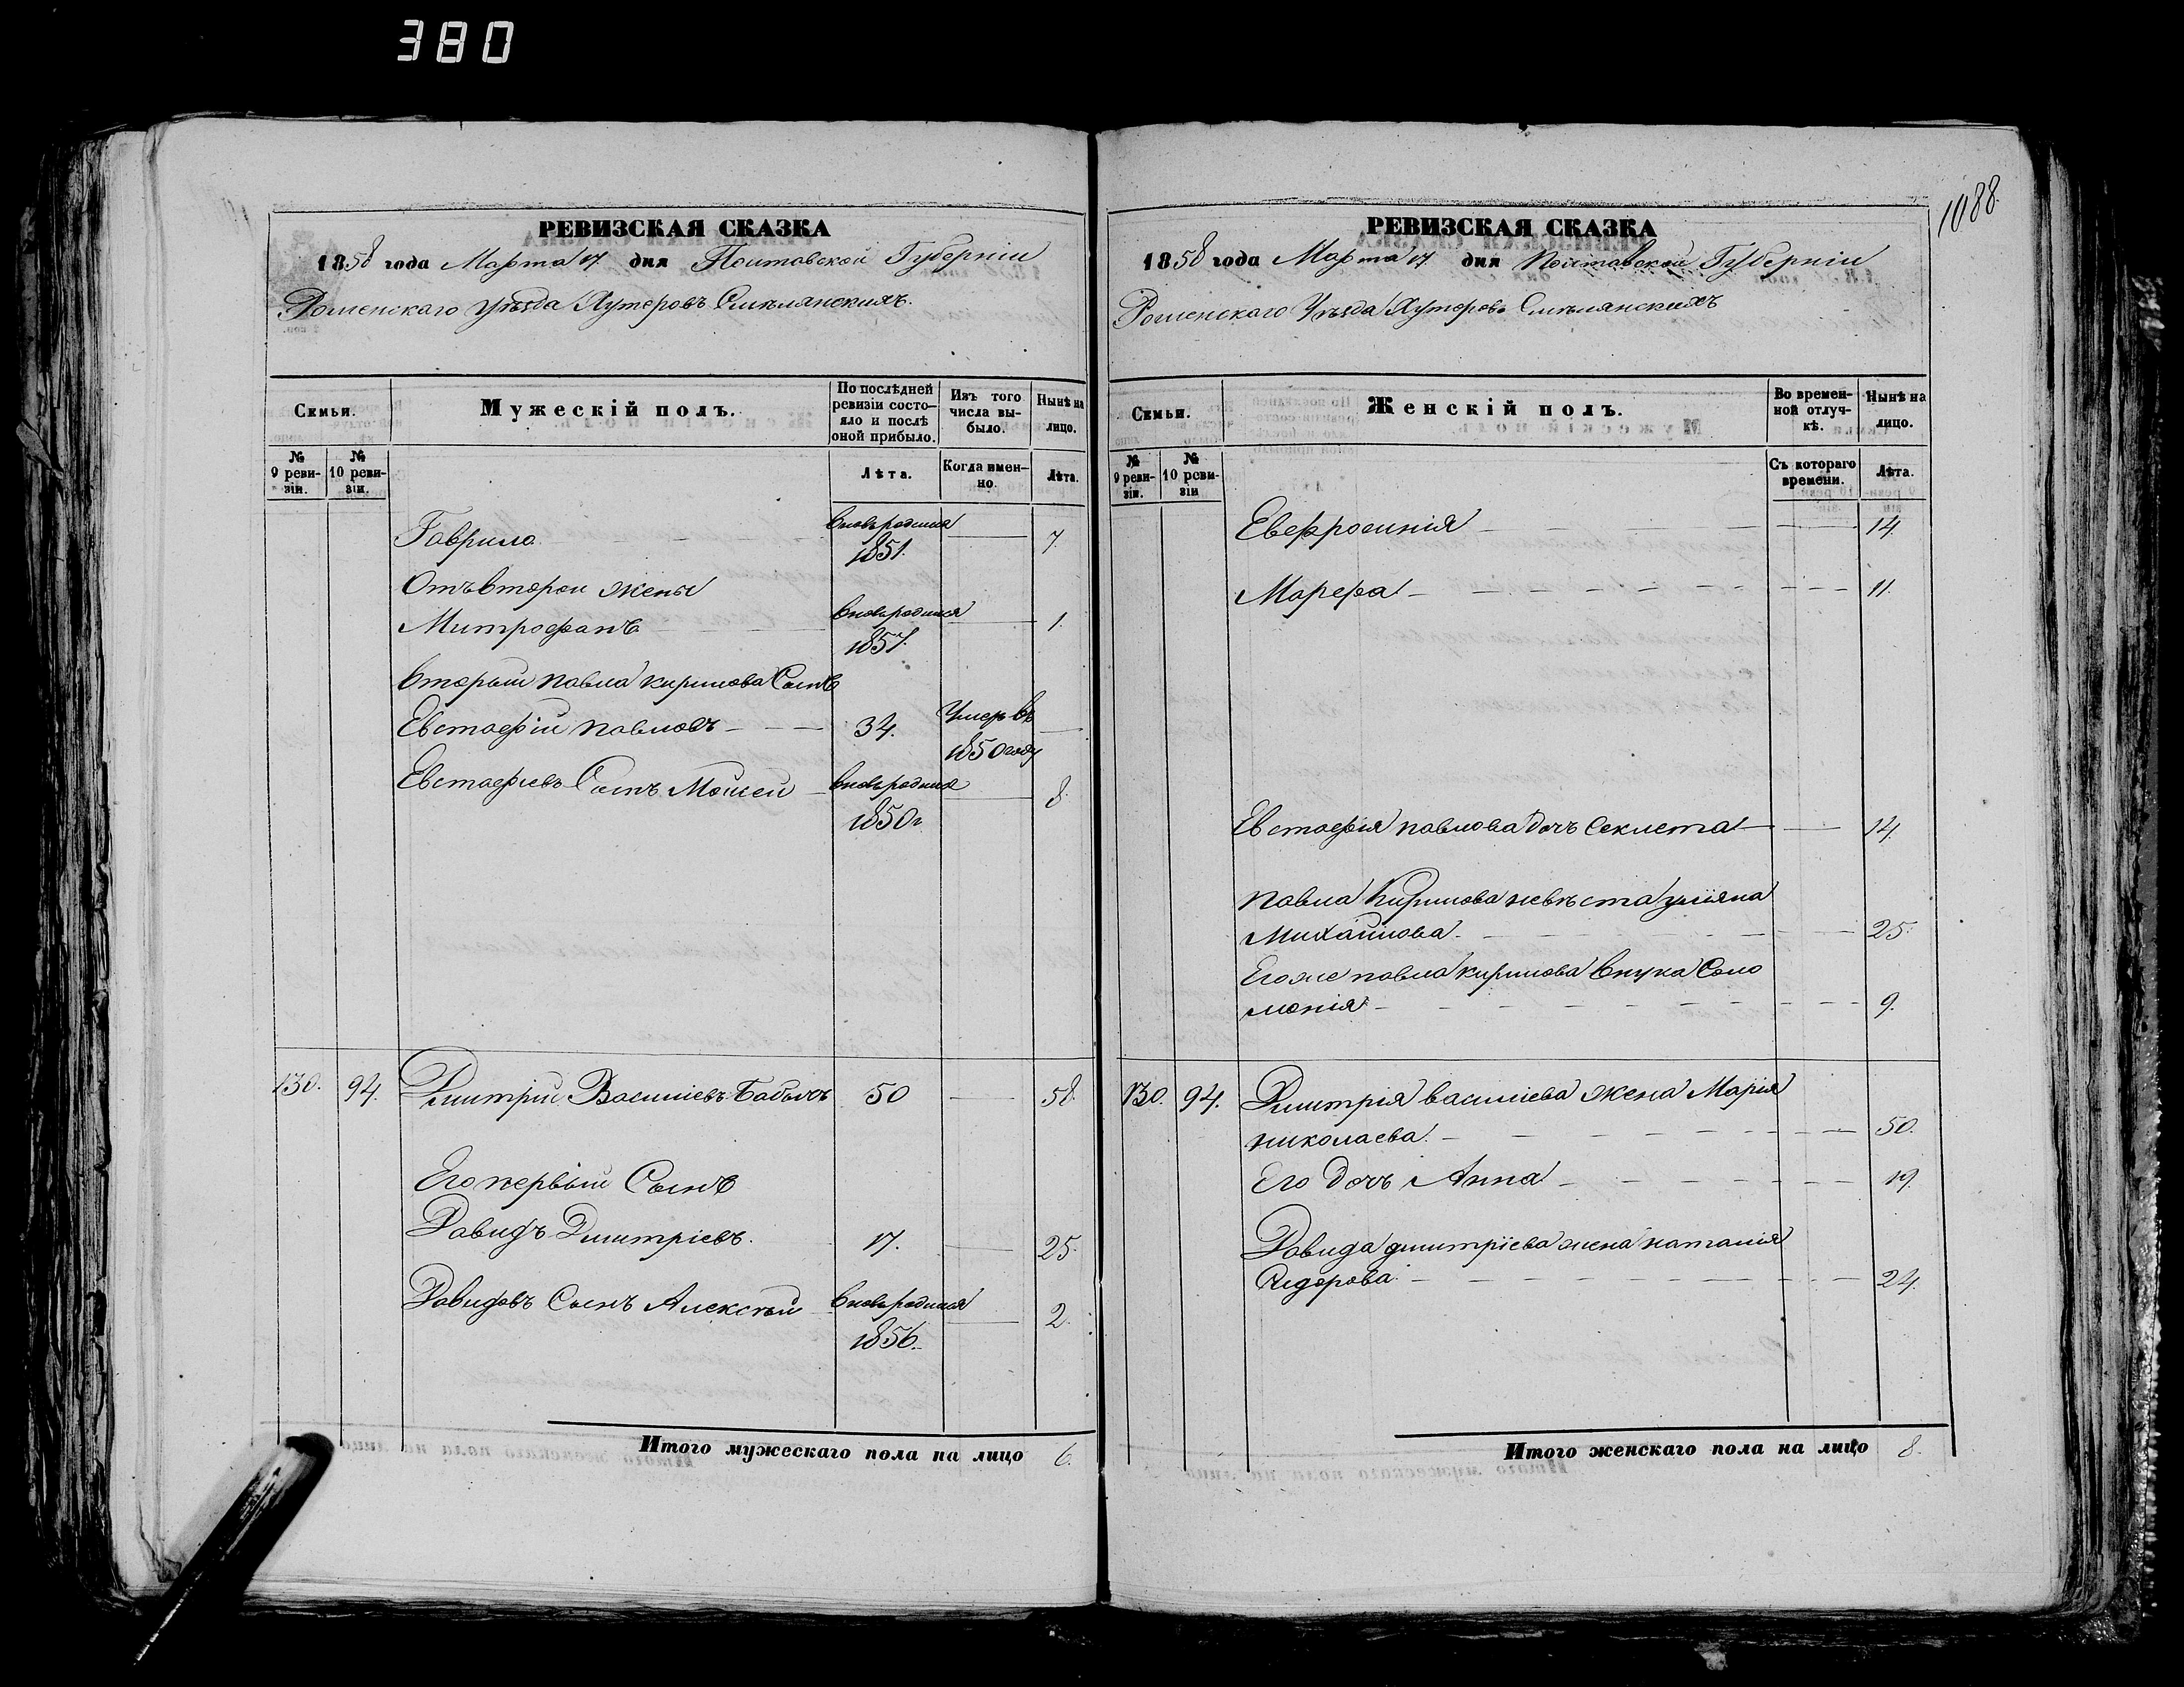 380
1088.
РЕВИЗСКАЯ СКАЗКА
1858 года Марта 17 дня Полтавской Губерніи
Роменскаго Уѣзда Хуторовъ Смѣлянскихъ.
Семьи.
Мужескій полъ.
По послѣдней ревизіи состояло и послѣ оной прибыло.
Изъ того числа выбыло.
Нынѣ на лицо.
№ 9 ревизіи.
№ 10 ревизіи.
Лѣта.
Когда имен-но
Лѣта.
Гаврило вновь родился 1851. 7.
Отъ второй жены
Митрофанъ вновь родился 1857. 1.
Вторый Павла Кирилова Сынъ
Евстафій Павловъ 34. Умеръ въ 1850 году
Евстафіевъ Сынъ Моисей вновь родился 1850 г 8.
130. 94. Дмитрій Василіевъ 50 58.
Его первый Сынъ
Давидъ Дмитріевъ. 17. 25.
Давидовъ Сынъ Алексѣй вновь родился 1856. 2.
Итого мужескаго пола на лицо 6.
РЕВИЗСКАЯ СКАЗКА
1858 года Марта 17 дня Полтавской Губерніи
Роменскаго Уѣзда Хуторовъ Смѣлянскихъ
Семьи.
Женскій полъ.
Во времен-ной отлуч-кѣ.
Нынѣ на лицо.
№ 9 реви-зіи.
№ 10 реви-зіи
Съ котораго времени.
Лѣта.
Евфросинія 14.
Марфа 11.
Евстафія Павлова дочь Секлета 14.
Павла Кирилова невѣста Уліяна
Михайлова 25.
Его же Павла Кирилова внука Соло
монія 9.
130. 94. Дмитрія Василіева жена Марія
Николаева. 50.
Его дочь Анна 19.
Давида Дмитріева жена Наталія
Сидорова 24.
Итого женскаго пола на лицо 8.